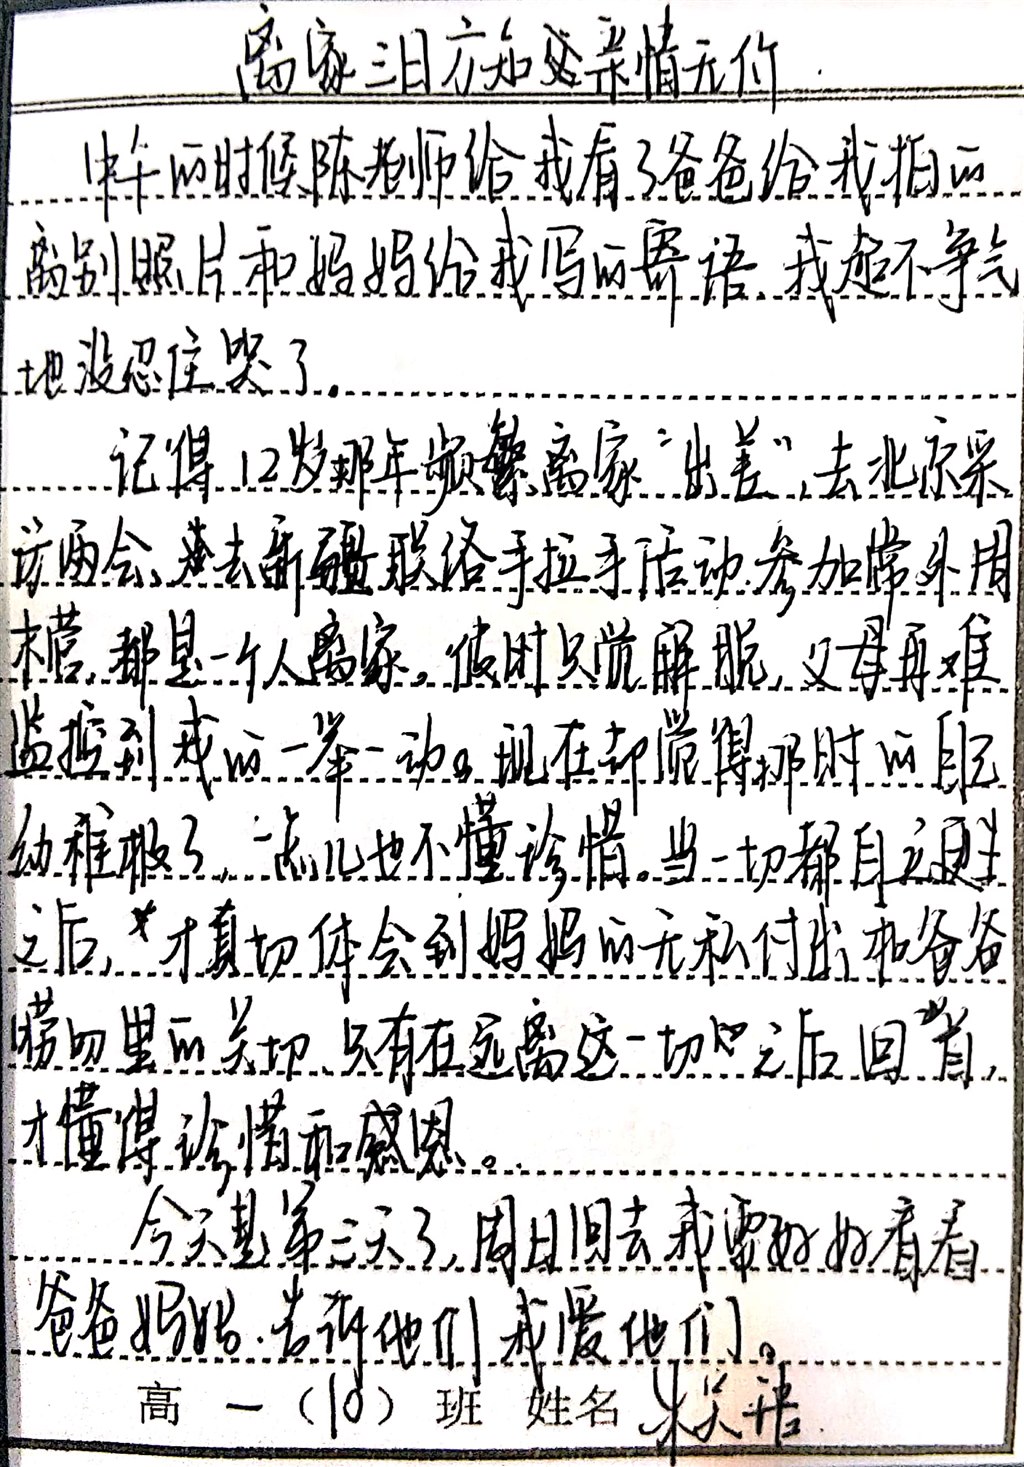 离家三日方知亲情无价
中午的时候陈老师给我看了爸爸给我拍的
离别照片和妈妈给我写的寄语,我超不争气
地没忍住哭了.
记得12岁那年频繁离家“出差”,去北京采
访两会、去新疆联络手拉手活动.参加常外周
末营,都是一个人离家。彼时只觉解脱,父母再难
监控到我的一举一动。现在却觉得那时的自己
幼稚极了,一点儿也不懂珍惜。当一切都自立更生
之后,才真切体会到妈妈的无私付出和爸爸
唠叨里的关切.只有在远离这一切之后回首,
才懂得珍惜和感恩。
今天是第三天了,周日回去我要好好看看
爸爸妈妈.告诉他们我爱他们。
高一(10)班 姓名 朱笑语